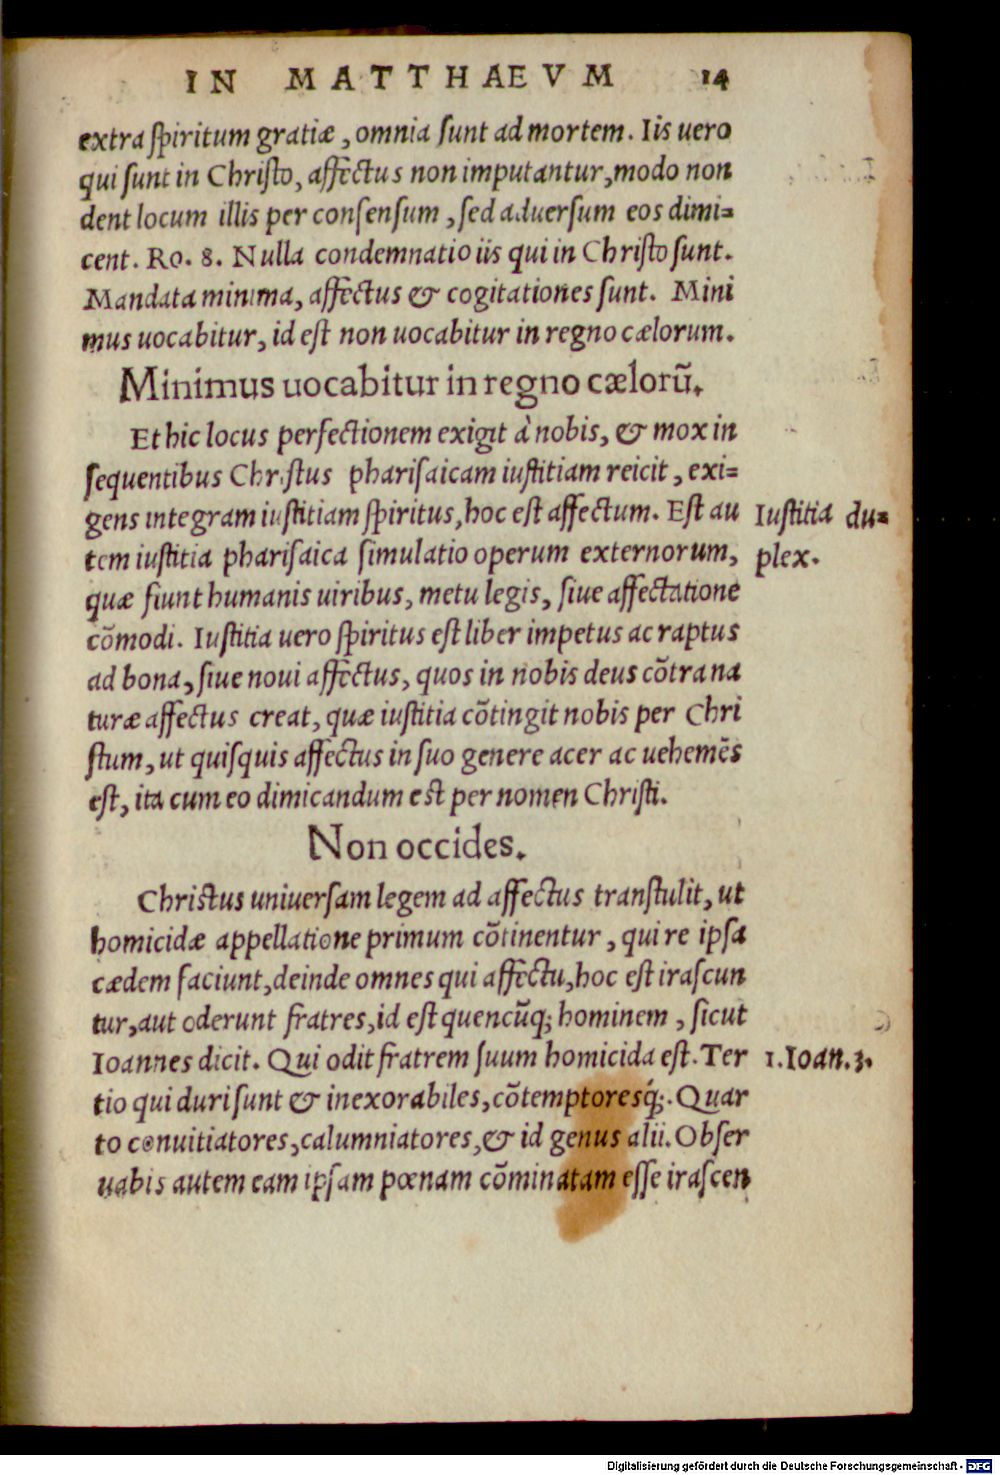 IN MATTHAEVM 14
extra spiritum gratiæ, omnia sunt ad mortem. Iis uero
qui sunt in Christo, affectus non imputantur, modo non
dent locum illis per consensum, sed aduersum eos dimi=
cent. Ro. 8. Nulla condemnatio iis qui in Christo sunt.
Mandata minima, affectus & cogitationes sunt. Mini
mus uocabitur, id est non uocabitur in regno cælorum.
Minimus uocabitur in regno cælorũ.
Et hic locus perfectionem exigit à nobis, & mox in
sequentibus Christus pharisaicam iustitiam reicit, exi=
gens integram iustitiam spiritus, hoc est affectum. Est au
Iustitia du=
tem iustitia pharisaica simulatio operum externorum,
plex.
quæ fiunt humanis uiribus, metu legis, siue affectatione
cõmodi. Iustitia uero spiritus est liber impetus ac raptus
ad bona, siue noui affectus, quos in nobis deus cõtra na
turæ affectus creat, quæ iustitia cõtingit nobis per Chri
stum, ut quisquis affectus in suo genere acer ac uehemẽs
est, ita cum eo dimicandum est per nomen Christi.
Non occides.
Christus uniuersam legem ad affectus transtulit, ut
homicidæ appellatione primum cõtinentur, qui re ipsa
cædem faciunt, deinde omnes qui affectu, hoc est irascun
tur, aut oderunt fratres, id est quencũq; hominem, sicut
Ioannes dicit. Qui odit fratrem suum homicida est. Ter
1. Ioan. 3.
tio qui duri sunt & inexorabiles, cõtemptoresq́;. Quar
to conuitiatores, calumniatores, & id genus alii. Obser
uabis autem eam ipsam pœnam cõminatam esse irascen
Digitalisierung gefördert durch die Deutsche Forschungsgemeinschaft - DFG